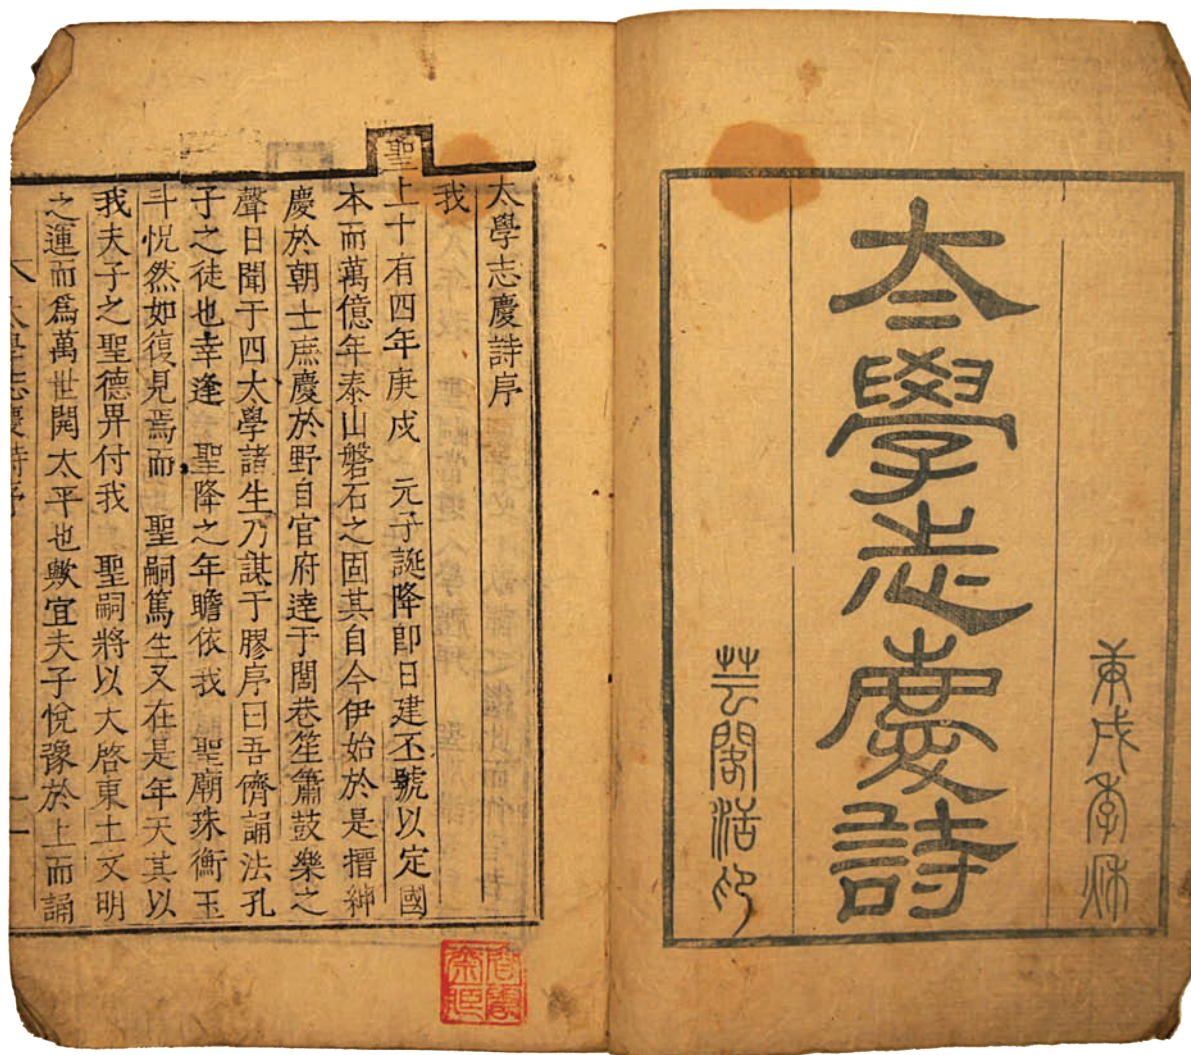 庚戌季秌
太學志慶詩
芸閣活印
太學志慶詩序
我
聖上十有四年庚戌 元子誕降即日建丕號以定國
本而萬億年泰山磐石之固其自今伊始於是搢紳
慶於朝士庶慶於野自官府達于閭巷笙簫鼓樂之
聲日聞于四太學諸生乃謀于膠序曰吾儕誦法孔
子之徒也幸逢 聖降之年瞻依我 聖廟珠衡玉
斗怳然如復見焉而 聖嗣篤生又在是年天其以
我夫子之聖德畀付我 聖嗣將以大啓東土文明
之運而爲萬世開太平也歟宜夫子悅豫於上而誦
太學志慶詩序